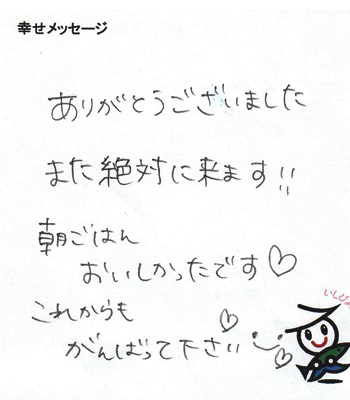 幸せメッセージ
ありがとうございました
また絶対に来ます!!
朝ごはん
おいしかったです♡
これからも
がんばって下さい♡